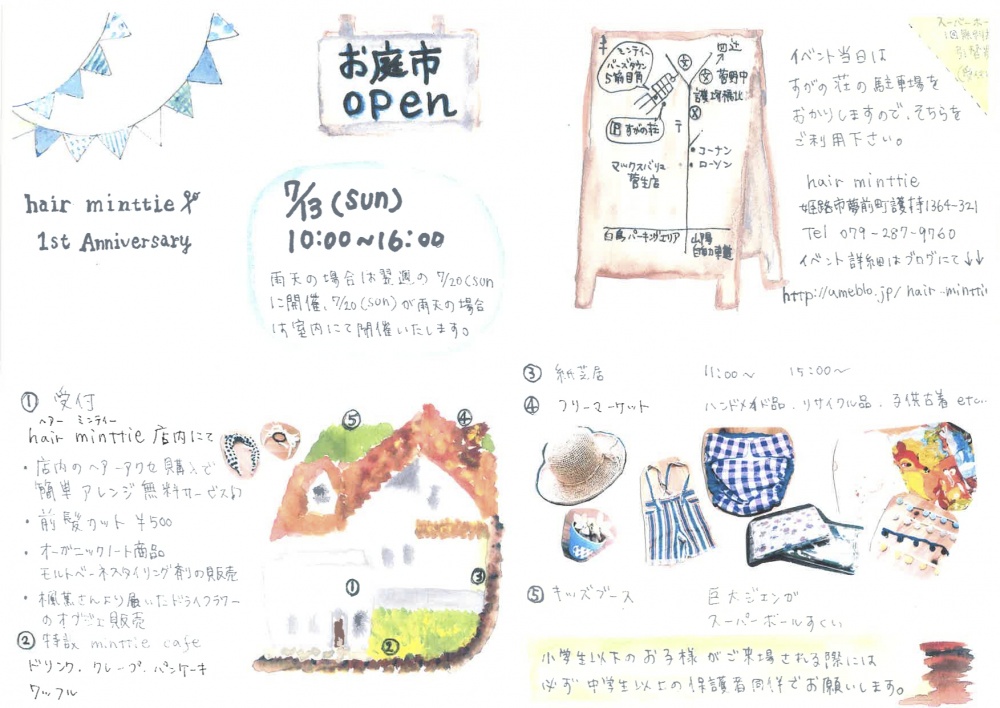 お庭市
open
hair minttie
1st Anniversary
7/13(sun)
10:00~16:00
雨天の場合は翌週の7/20(sun
に開催、7/20(sun)が雨天の場合
は室内にて開催いたします。
ミンティー
バーズタウン
5軒目角
四辻
菅野中
護持橋北
P すがの荘
〒
コーナン
ローソン
マックスバリュ
菅生店
白鳥パーキングエリア
山陽
自動車道
スーパーボー
1回無料
イベント当日は
すがの荘の駐車場を
おかりしますので、そちらを
ご利用下さい。
hair minttie
姫路市夢前町護持1364-321
Tel 079-287-9760
イベント詳細はブログにて↓↓
http://ameblo.jp/hair-minttie
① 受付
ヘアー ミンティー
hair minttie 店内にて
・店内のヘアーアクセ購入で
簡単アレンジ無料サービス♪
・前髪カット ¥500
・オーガニックノート商品
モルトベーネスタイリング剤の販売
・楓蔦さんより届いたドライフラワー
のオブジェ販売
② 特設 minttie cafe
ドリンク、クレープ、パンケーキ
ワッフル
⑤
④
③
①
②
③ 紙芝居 11:00~ 15:00~
④ フリーマーケット ハンドメイド品、リサイクル品、子供古着 etc..
⑤ キッズブース 巨大ジェンガ
スーパーボールすくい
小学生以下のお子様がご来場される際には
必ず中学生以上の保護者同伴でお願いします。